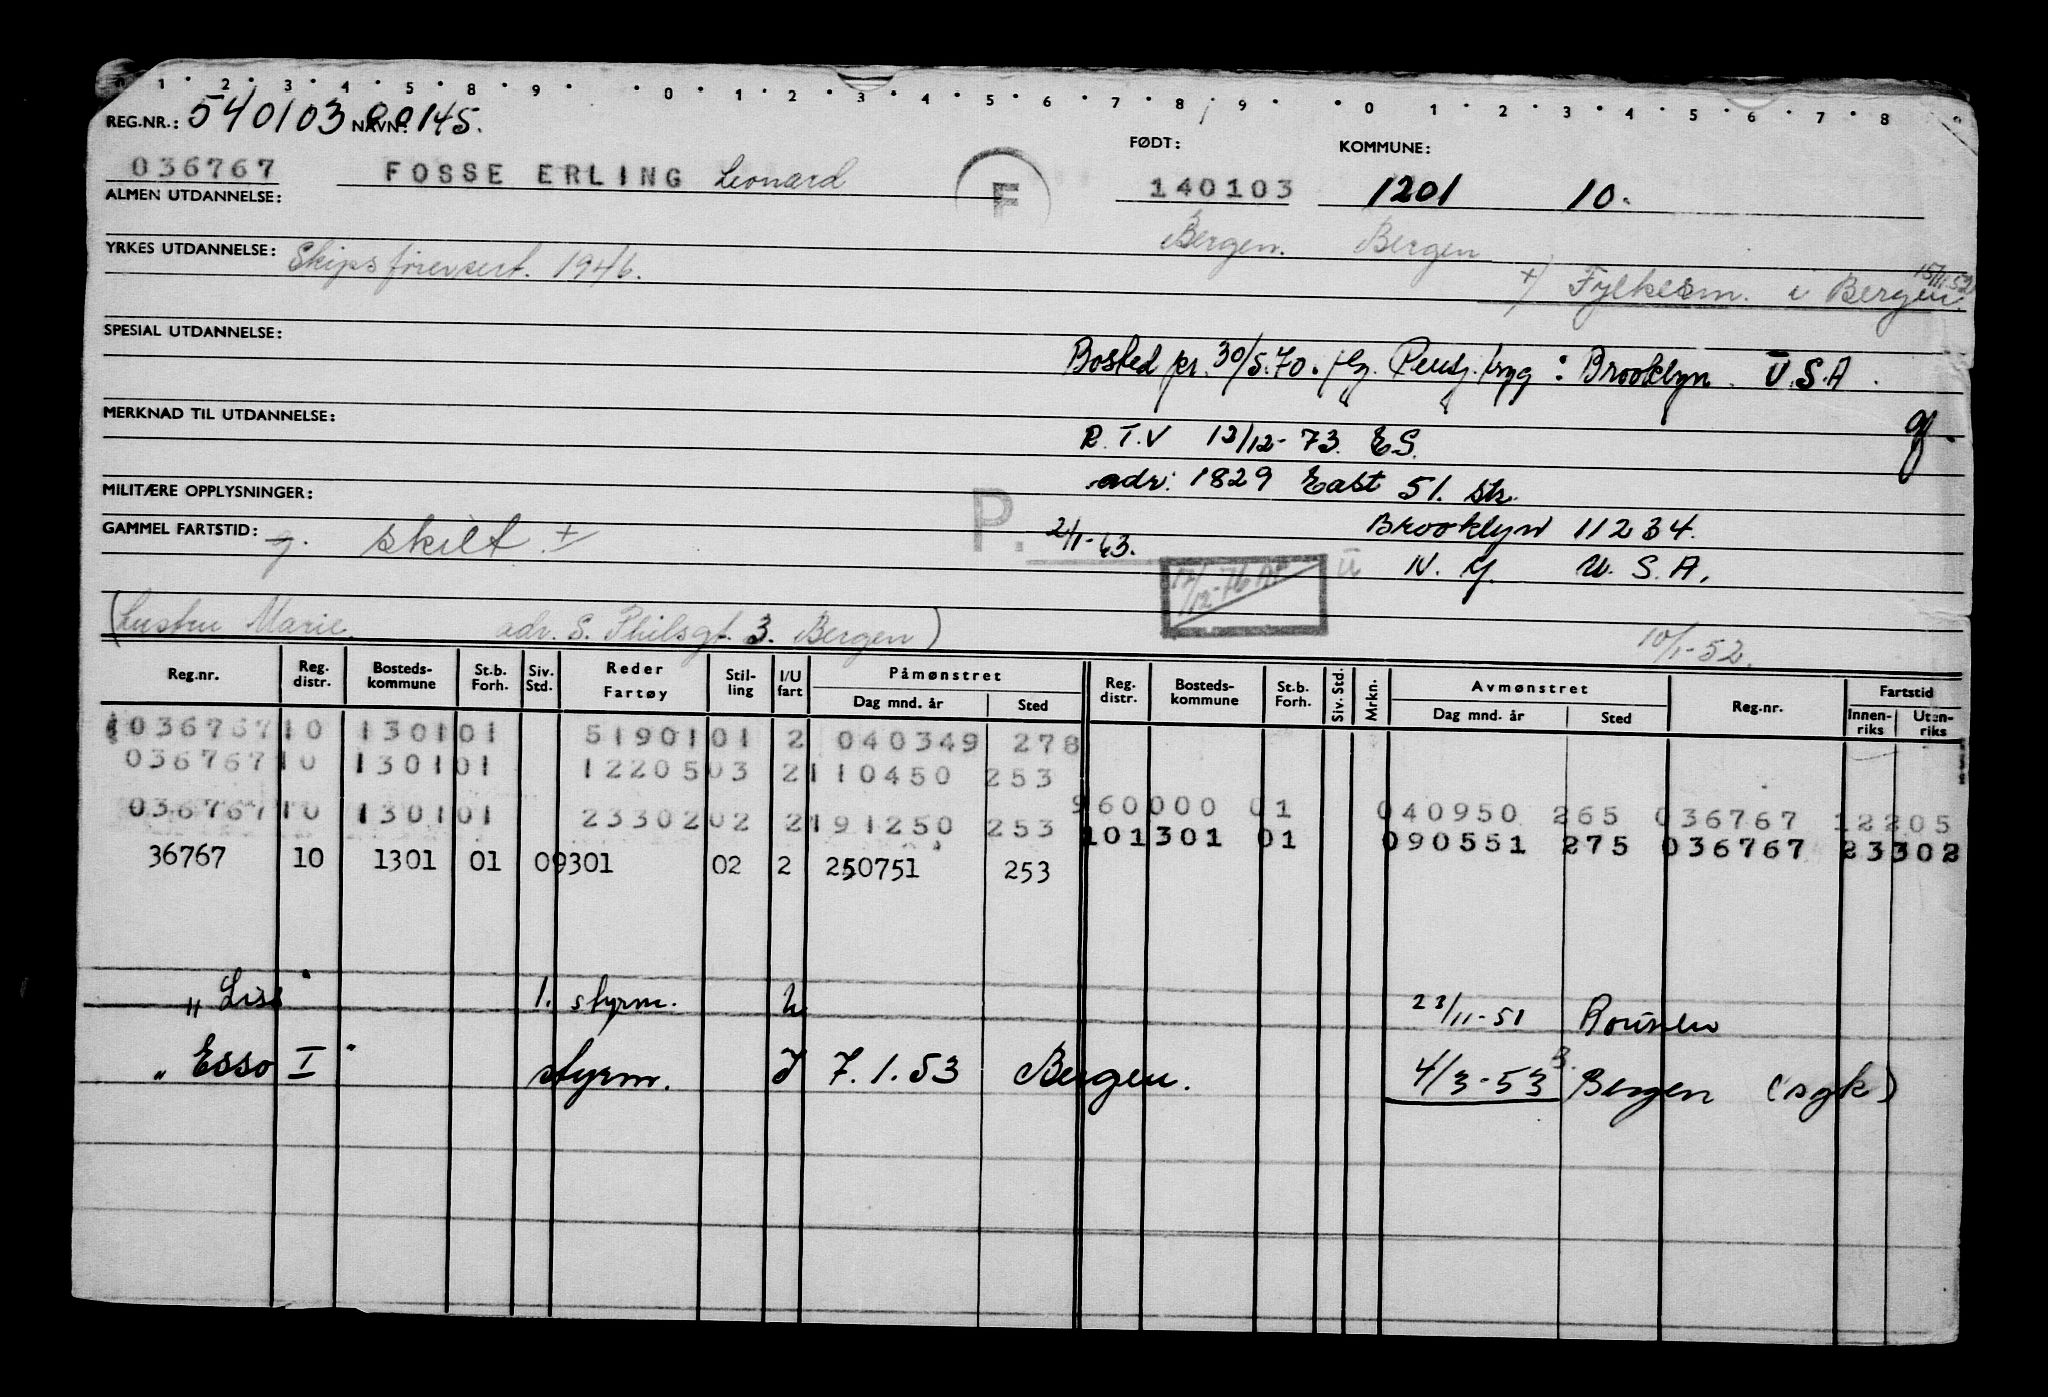 0 1 2 3 4 5 8 9 0 1 2 3 4 5 6 7 8 9 0 1 2 3 4 5 6 7 8 9
REG.NR.: 540103 00145. NAVN: FØDT: KOMMUNE:
036767 FOSSE ERLING Leonard F 140103 1201 10.
ALMEN UTDANNELSE:
Bergen. Bergen
YRKES UTDANNELSE: Skipsførersert. 1946. +) Fylkesm. i Bergen. 15/11-52
SPESIAL UTDANNELSE:
Bosted pr. 30/5.70. flg. Pensj. tryg: Brooklyn. U.S.A.
MERKNAD TIL UTDANNELSE: g.
R.T.V 12/12-73. ES.
adr: 1829 East 51. str.
MILITÆRE OPPLYSNINGER:
GAMMEL FARTSTID: g. skilt + P. 2/1-63. Brooklyn 11234.
17/12-76 U N.Y. U.S.A.
(Hustru Marie. adr. S. Philsgt. 3. Bergen) 10/1-52.
Reg.nr. Reg. distr. Bosteds-kommune St.b. Forh. Siv. Std. Reder Fartøy Stil-ling I/U fart Påmønstret Dag mnd. år Sted Reg. distr. Bosteds-kommune St.b. Forh. Siv. Std. Mrkn. Avmønstret Dag mnd. år Sted Reg.nr. Fartstid Innen-riks Uten-riks
036767 10 1301 01 51901 01 2 040349 278
036767 10 1301 01 12205 03 2 110450 253
960000 01 040950 265 036767 12205
036767 10 1301 01 23302 02 2 191250 253
101301 01 090551 275 036767 23302
36767 10 1301 01 09301 02 2 250751 253
" Lise " 1. styrm. U 23/11-51 Rouen
" Esso I " styrm. I 7.1.53 Bergen. 4/3-53 Bergen (sgk)